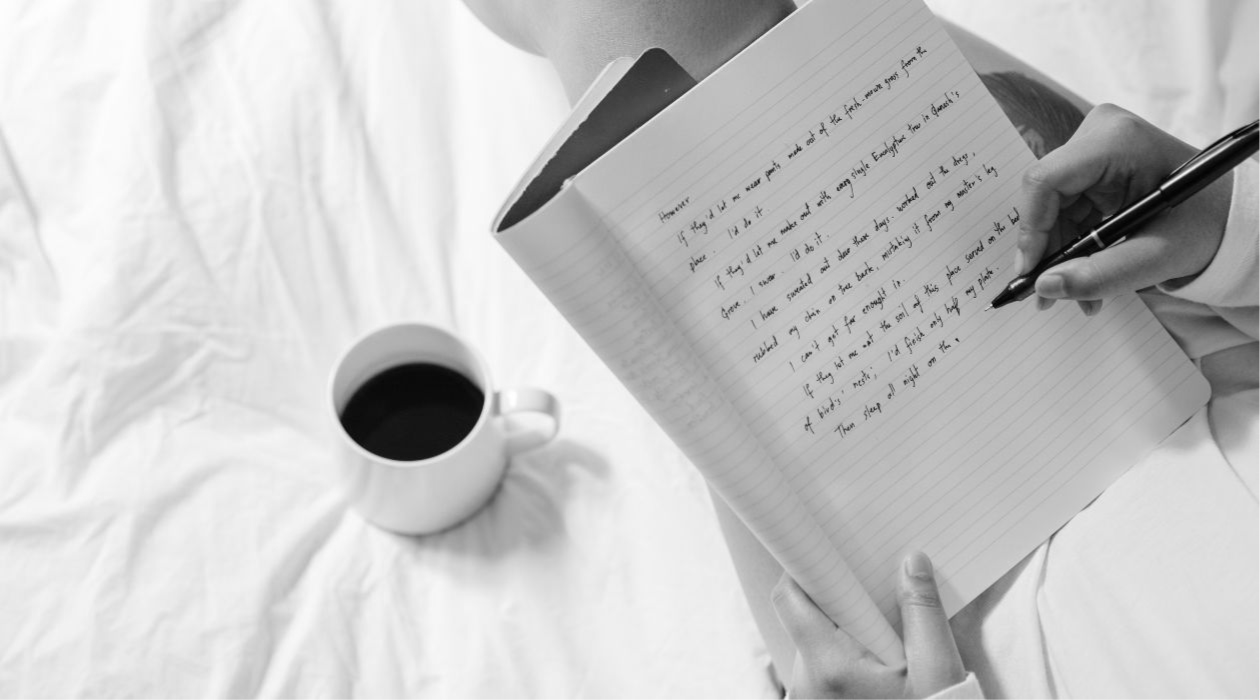 However
If they'd let me wear pants made out of the fresh-mown grass from the
place. I'd do it
If they'd let me make out with every single Eucalyptus tree in Queen's
Grove.. I swear.. I'd do it.
I have sweated out dear these days. worked out the dregs,
rubbed my chin on tree bark, mistaking it from my master's leg
I can't get far enough in.
If they let me eat the soil of this place served on the bed
of birds' nests; I'd finish only half my plate.
Then sleep all night on the